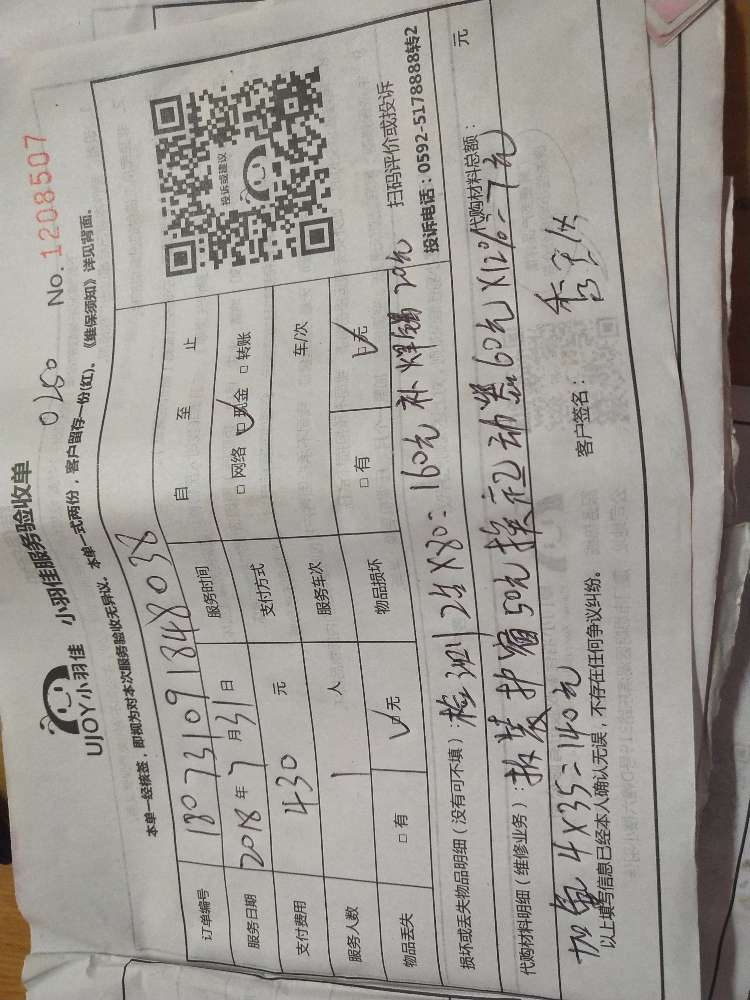 UJOY小羽佳 小羽佳服务验收单 0250 No. 1208507
本单一经核签，即视为对本次服务验收无异议。本单一式两份，客户留存一份(红)。《维保须知》详见背面。
订单编号 180731091848038
服务时间 自 至 止
服务日期 2018年7月31日
支付方式 □网络 □现金 □转账
支付费用 430 元
服务车次 车/次
服务人数 1 人
物品损坏 □有 □无
物品丢失 □有 □无
投诉或建议
扫码评价或投诉
投诉电话：0592-5178888转2
损坏或丢失物品明细（没有可不填）：检测2台X80=160元 补焊锡20元
代购材料明细（维修业务）：拆装护窗50元换起动器60元X12%=7元 代购材料总额： 元
加氟4X35=140元
以上填写信息已经本人确认无误，不存在任何争议纠纷。 客户签名：